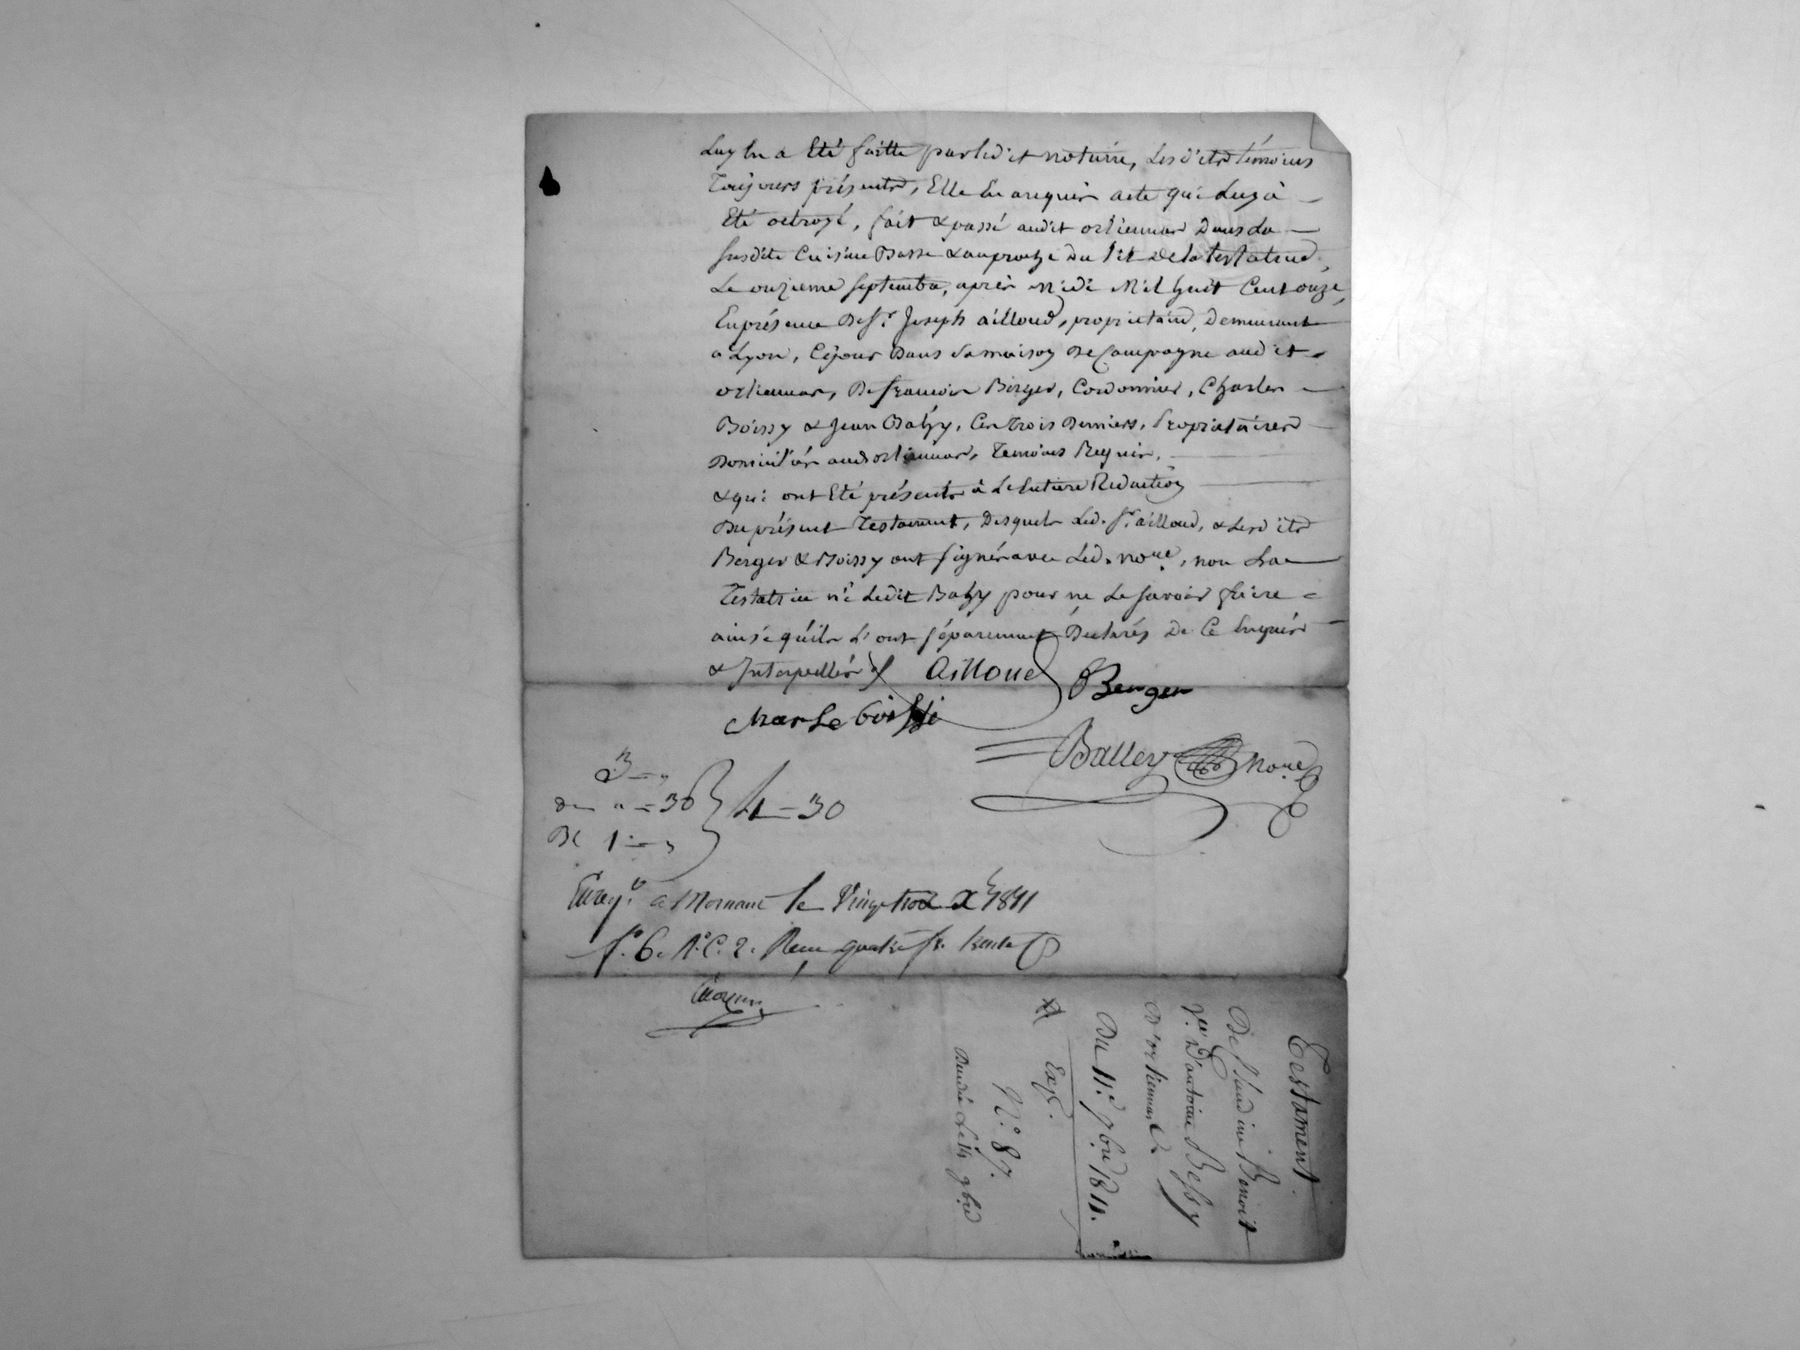 Luy en a Eté faitte par ledit notaire, Les dits témoins
Toujours présents, Elle En a requis acte qui Luy à
Eté octroyé, fait & passé audit orliennas Dans La
susdite Cuisine Basse & au proche Du lit De la testatrice,
Le onzieme septembre, après midi Mil huit Cent onze,
En présence De sr. Joseph ailloud, proprietaire, Demeurant
a Lyon, Céjour Dans Sa maison De Campagne audit
orliennas, De francois Berger, Cordonnier, Charles
Boissy & Jean Bazy, Ces trois Derniers, Propriétaires
Domiciliés aud. orliennas, Temoins Requis,
& qui ont Eté présents à L'entiere Redaction
Du présent Testament, Desquels Led. sr. ailloud, & Lesdits
Berger & Boissy ont signés avec Led. nore., non La
Testatrice ni Ledit Bazy pour ne Le savoir faire
ainsi qu'ils L'ont séparement Déclarés De Ce Enquis
& Interpellés
Ailloud Berger
Charle boissi
Balley Nore.
3 = "
Dm " = 30
4 = 30
Be 1 = "
Enregé. a Mornant le Vingt trois Xbre 1811
fo. 6. Ro. C. 2. Recu quatre fr. trente c.
Testament
De Claudine Benoit
Ve. D'antoine Bessy
D'orliennas
Du 11e. 7bre 1811.
Exp.
No. 87.